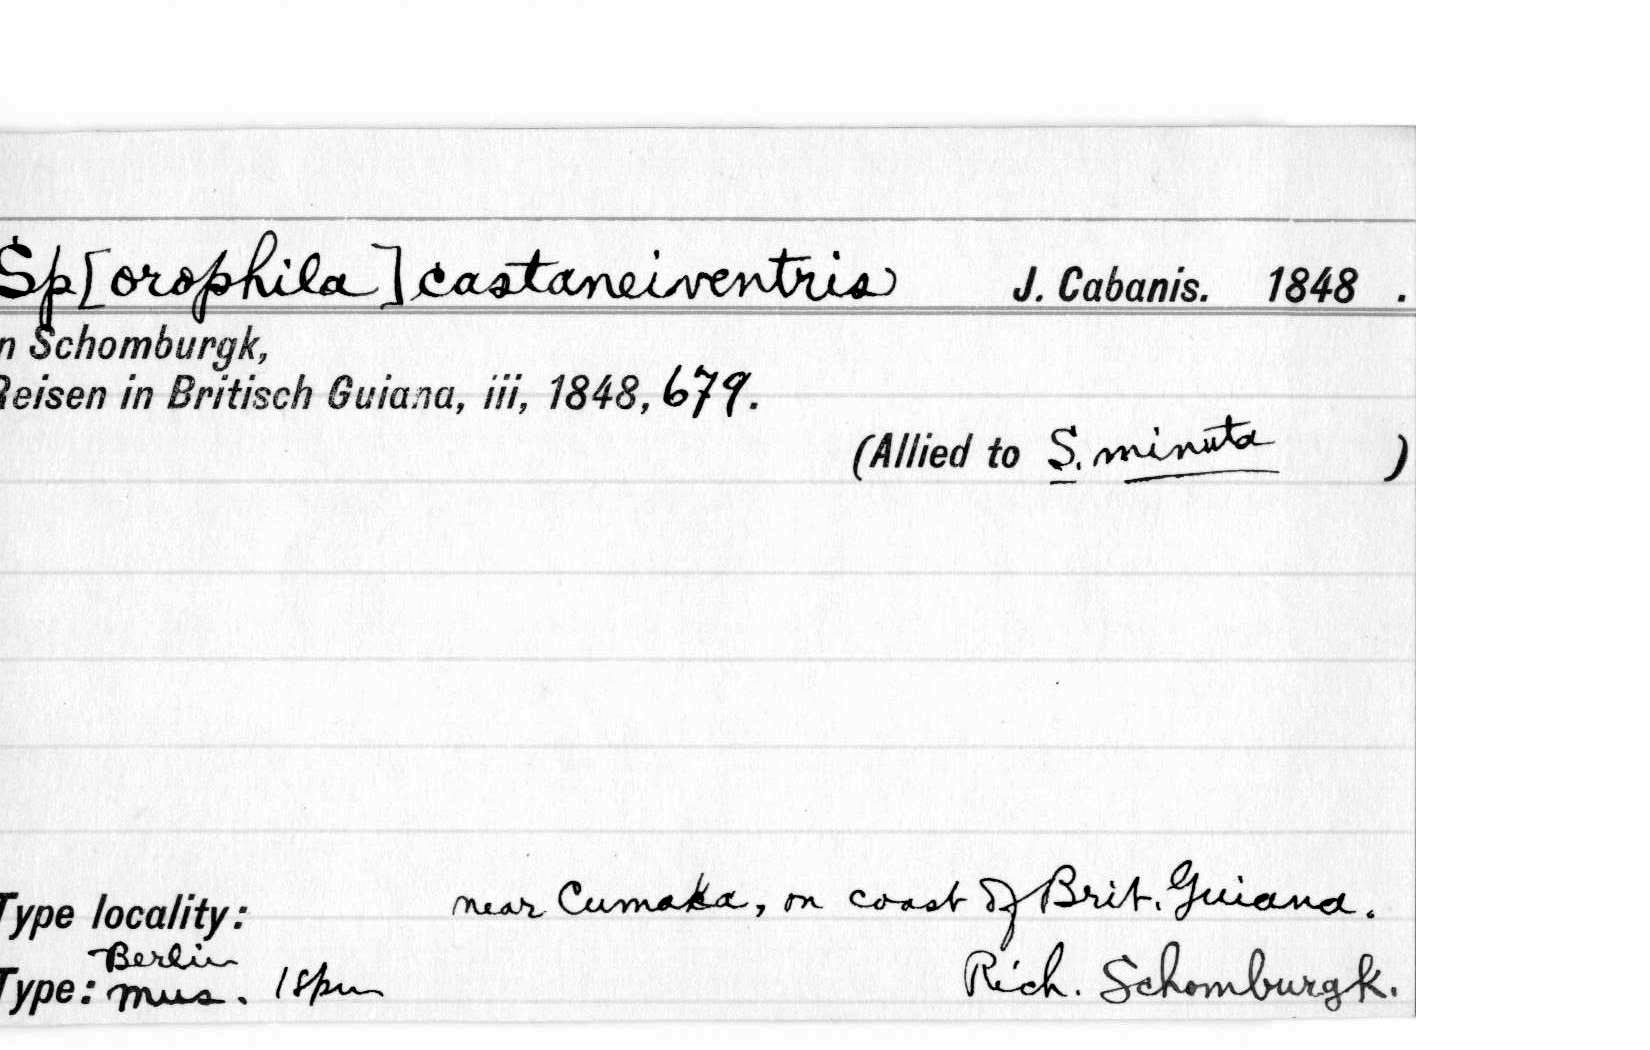 Sp[orophila] castaneiventris J. Cabanis. 1848 .
n Schomburgk,
Reisen in Britisch Guiana, iii, 1848, 679.
(Allied to S. minuta )
Type locality: near Cumaka, on coast of Brit. Guiana.
Berlin
Type: mus. 1 spm Rich. Schomburgk.